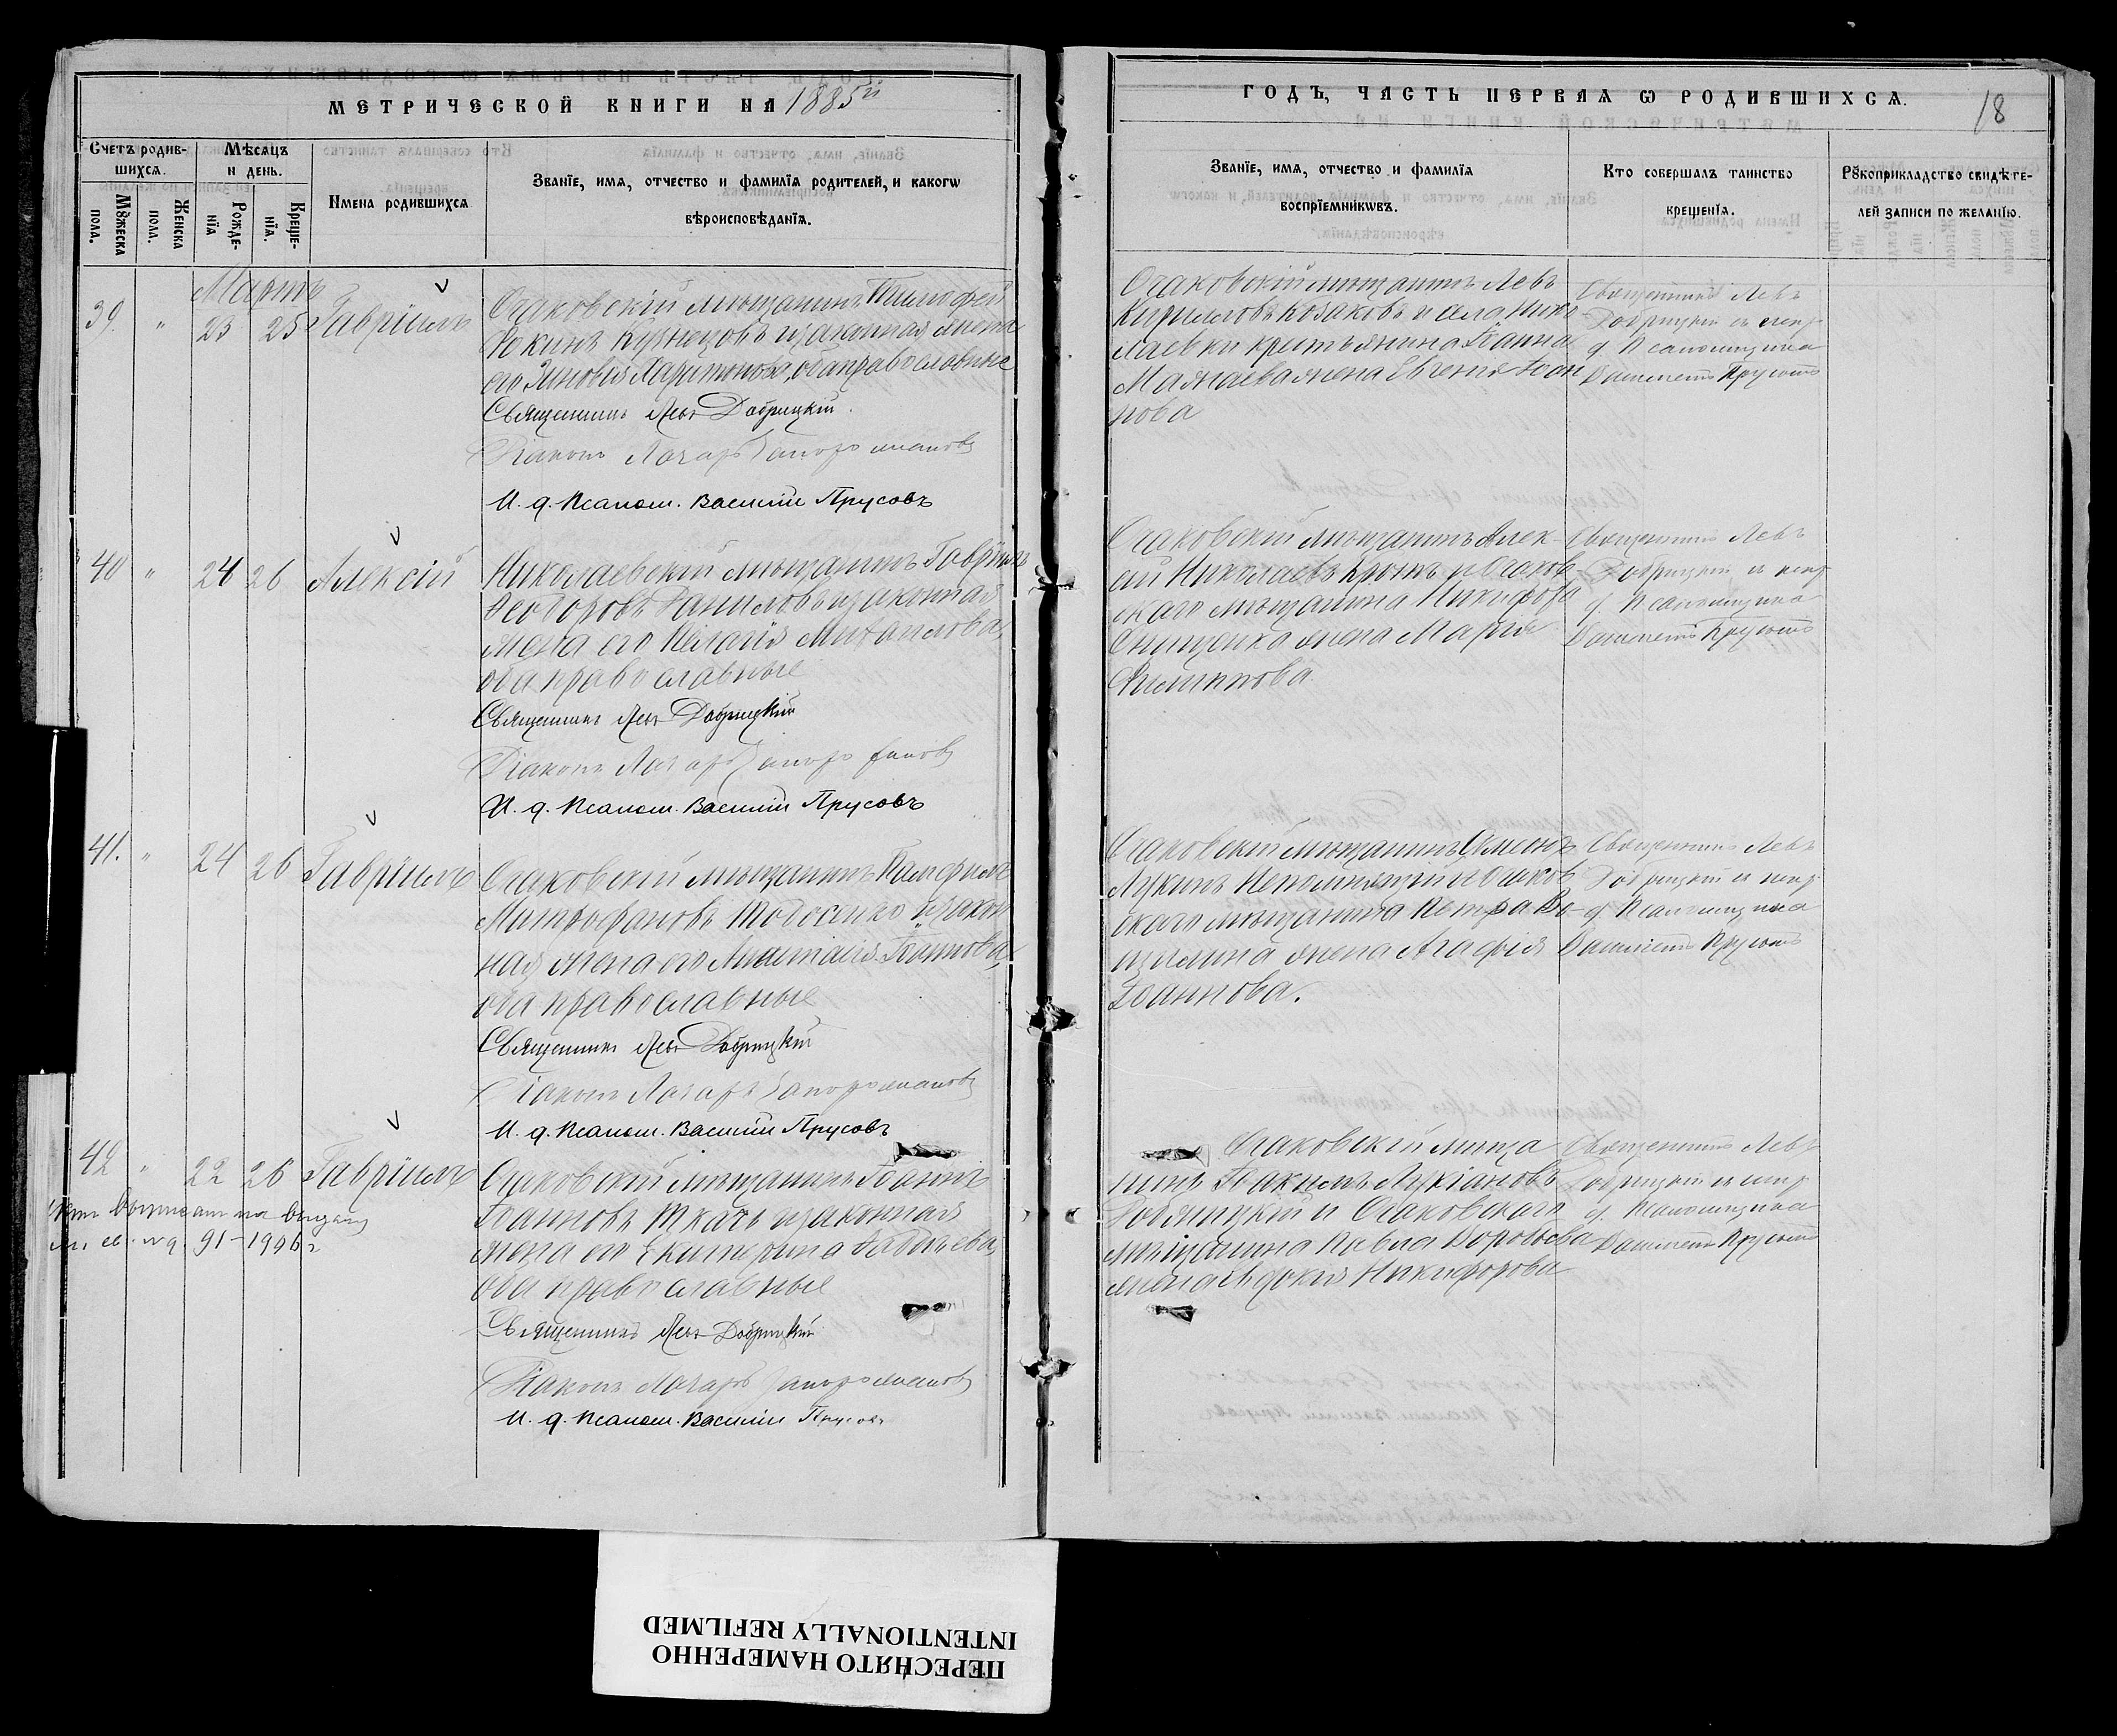 МЕТРИЧЕСКОЙ КНИГИ НА 1885й
Счетъ родив-
шихся.
Мѣсяцъ
и день.
Мꙋжеска
пола.
Женска
пола.
Рожде-
нїя
Креще-
нїя.
Имена родившихся
Званїе, имя, отчество и фамилїя родителей, и какогѡ
вѣроисповѣданїя.
Мартъ
39. " 23 25 Гавріилъ
Очаковскій мѣщанинъ Тимофей
Фокинъ Кузнецовъ и законная жена
его Зиновія Харитонова, оба православные
Священникъ Левъ Добрицкій.
Діаконъ Лазарь
И. д. Псалом. Василій Прусовъ
40 " 24 26 Алексій
Николаевскій мѣщанинъ Гавріилъ
Ѳеодоровъ Даниловъ и законная
жена его Пелагія Михаилова,
оба православные
Священникъ Левъ Добрицкій
Діаконъ Лазарь
И. д. Псалом. Василій Прусовъ
41. " 24 26 Гавріилъ
Очаковскій мѣщанинъ Памфилъ
Митрофановъ Тодосенко и закон
ная жена его Анастасія
оба православные
Священникъ Левъ Добрицкій
Діаконъ Лазарь
И. д. Псалом. Василій Прусовъ
42 " 22 26 Гавріилъ
Очаковскій мѣщанинъ Іоаннъ
Іоанновъ Ткачъ и законная
жена его Екатерина
оба православные
91-1906 г
Священникъ Левъ Добрицкій
Діаконъ Лазарь
И. д. Псалом. Василій Прусовъ
ГОДЪ, ЧАСТЬ ПЕРВАЯ Ѡ РОДИВШИХСЯ.
18
Званїе, имя, отчество и фамилїя
воспрїемникѡвъ.
Кто совершалъ таинство
крещенїя.
Рꙋкоприкладство свидѣте-
лей записи по желанїю.
Очаковскій мѣщанинъ Левъ
Кирилловъ Козаковъ и
крестьянина Іоанна
жена Евгенія Іоан
нова
Священникъ Левъ
Добрицкій и испр.
д. Псаломщика
Василій Прусовъ
Очаковскій мѣщанинъ Алек-
сѣй Николаевъ и Очаков-
скаго мѣщанина Никифора
Онищенко жена Марія
Филиппова
Священникъ Левъ
Добрицкій и испр.
д. Псаломщика
Василій Прусовъ
Очаковскій мѣщанинъ Симеонъ
Лукинъ Непомнящій и Очаков
скаго мѣщанина Петра
жена Агафія
Іоаннова.
Священникъ Левъ
Добрицкій и испр.
д. Псаломщика
Василій Прусовъ
Очаковскій мѣща
нинъ Іоакимъ Лукіановъ
и Очаковскаго
мѣщанина Павла
жена Евдокія Никифорова
Священникъ Левъ
Добрицкій и испр.
д. Псаломщика
Василій Прусовъ
ПЕРЕСНЯТО НАМЕРЕННО
INTENTIONALLY REFILMED